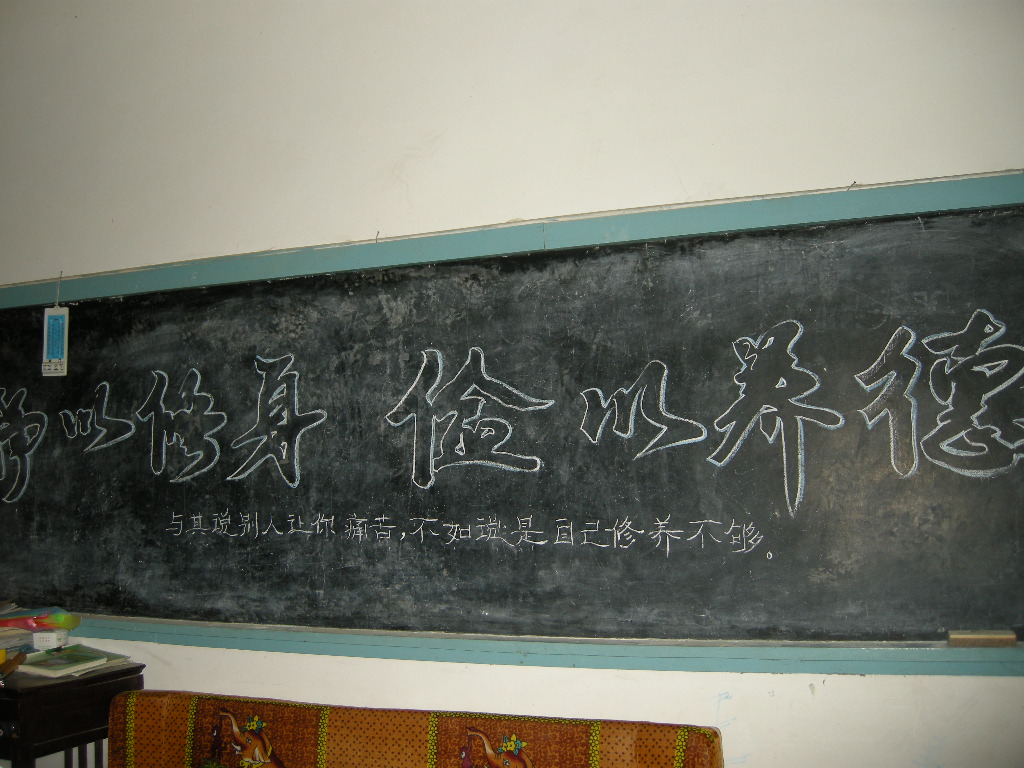 静以修身 俭以养德
与其说别人让你痛苦，不如说是自己修养不够。